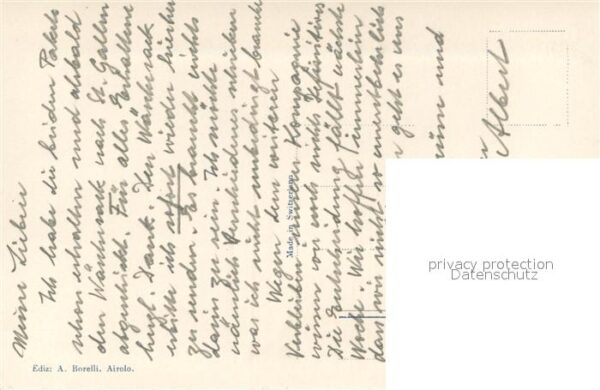 Meine Lieben
Ich habe die beiden Pakete
schon erhalten und alsbald
den Wäschesack nach St. Gallen
abgeschickt. Für alles Erhaltene
herzl. Dank. Den Wäschesack
bitte ich sofort wieder zurück
zu senden. Es braucht nichts
darin zu sein. Ich möchte
nämlich Verschiedenes schicken
was ich nicht unbedingt brauche
Wegen dem weiteren
Verbleiben unserer Kompanie
wissen wir noch nichts Definitives
Die Entscheidung fällt nächste
Woche. Wir hoffen immerhin
dass wir nicht so
geht es uns
und
Albert
Made in Switzerland
Ediz: A. Borelli, Airolo.
privacy protection
Datenschutz